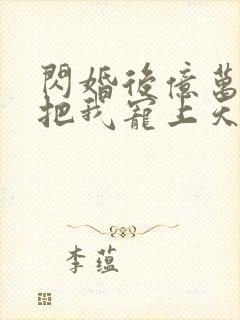 閃婚後億萬
把我寵上天
李蘊